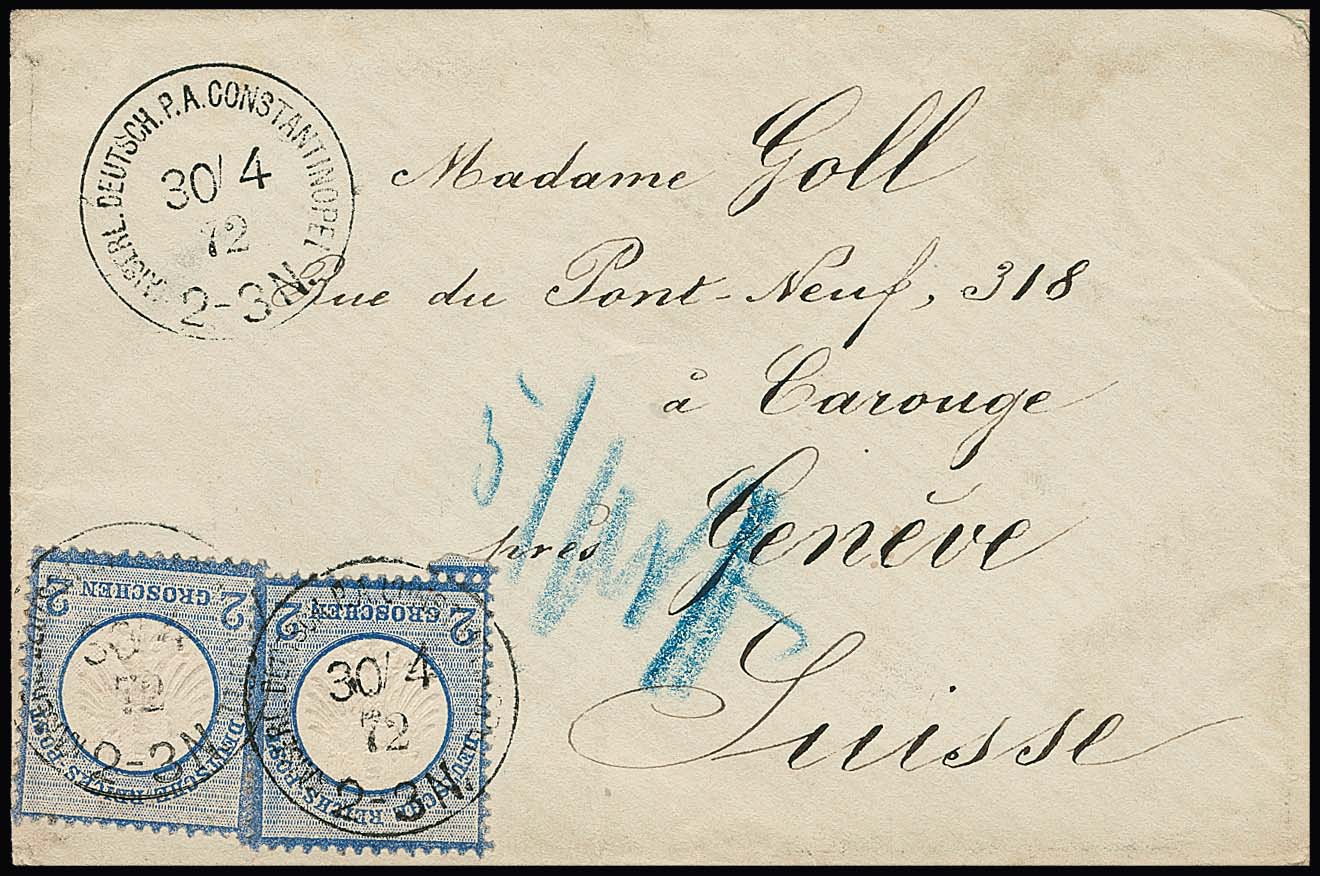 KAISERL. DEUTSCH. P. A. CONSTANTINOPEL
30/4
72
2-3N.
Madame Goll
Rue du Pont-Neuf, 318
à Carouge
près Genève
Suisse
5/
2 GROSCHEN 2
DEUTSCHE REICHS-POST
30/4
72
2-3N.
2 GROSCHEN 2
DEUTSCHE REICHS-POST
30/4
72
2-3N.